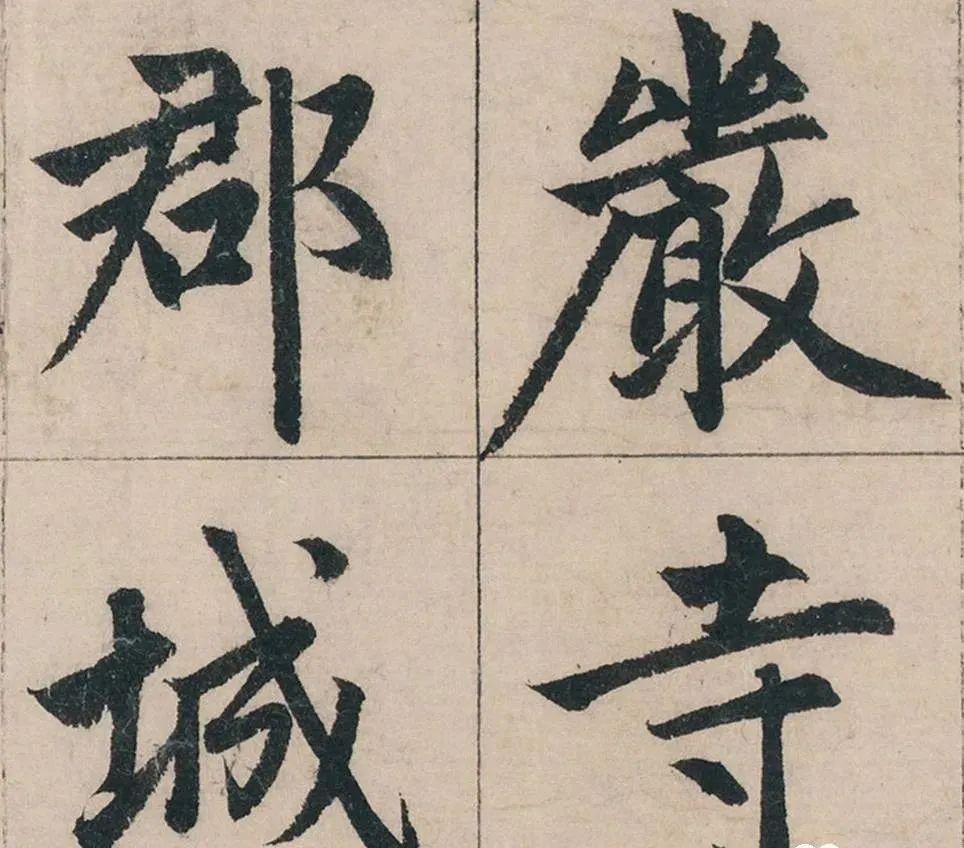 嚴寺
郡城